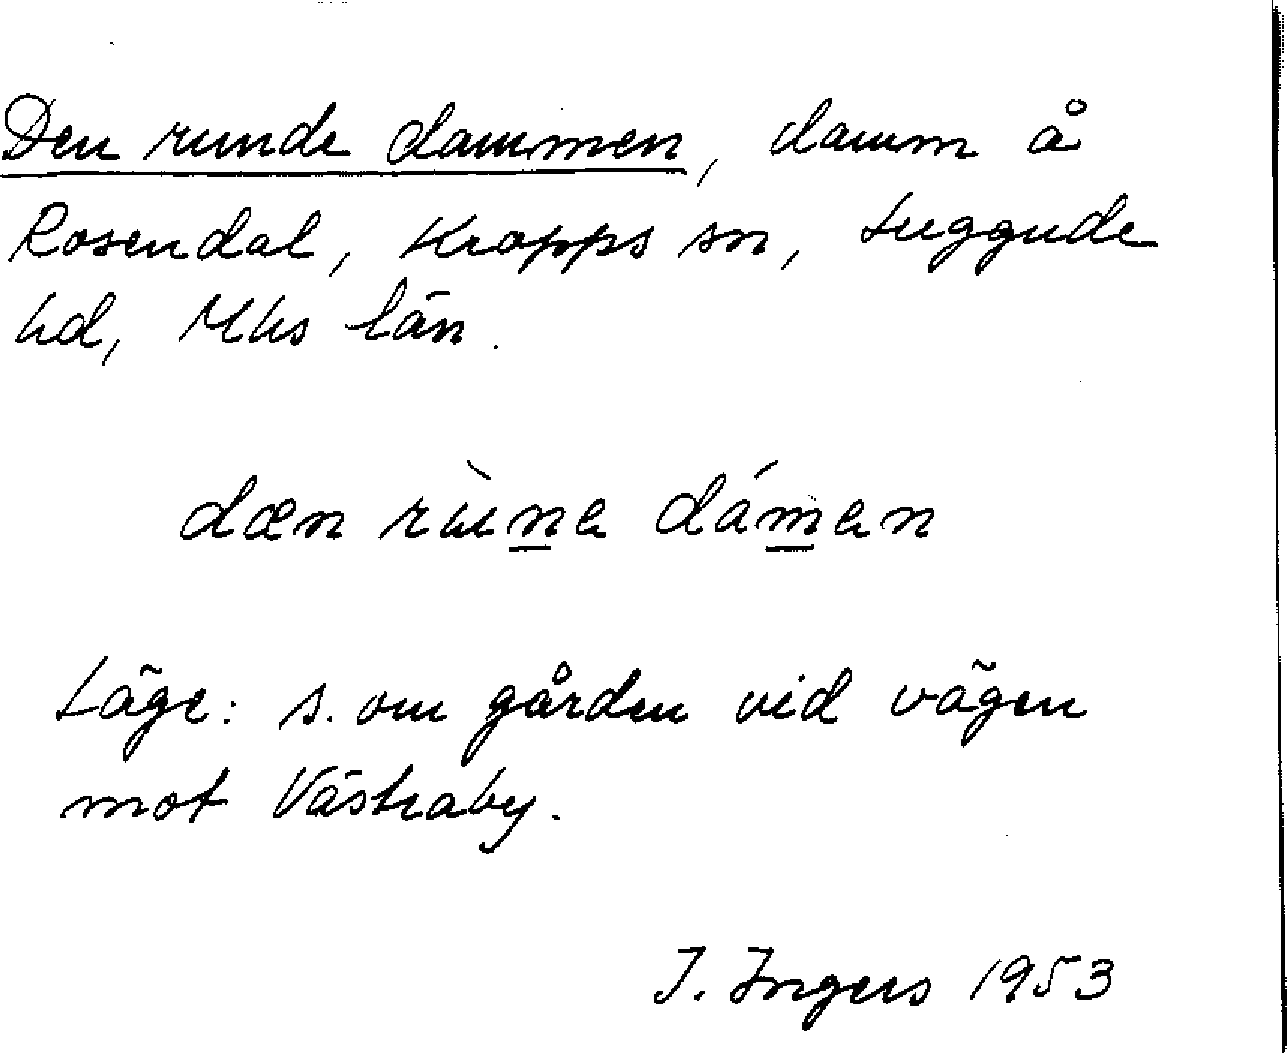 Den runde dammen, damm å
Rosendal, Kropps sn, Luggude
hd, Mhs län.
dæn rùne dámen
Läge: s. om gården vid vägen
mot Västraby.
I. Ingers 1953